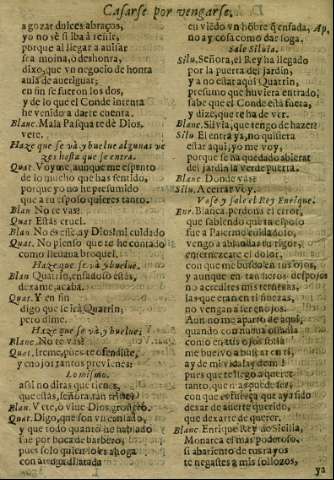 Casarse por vengarse,
a gozar dulces abraços,
yo no sè si iba à reñir,
porque al llegar a auisar
sea moina, o deshonra,
dixo, que vn negocio de honra
auia de aueriguar:
en fin se fueron los dos,
y de lo que el Conde intenta
he venido a darte cuenta.
Blanc. Mala Pasqua te dè Dios,
vete.
Haze que se và y buelue algunas ve-
zes hasta que se entra.
Quat. Voyme, aunque me espanto
de lo mucho que has sentido,
porque yo no he presumido
que a tu esposo quieres tanto.
Blan. No te vas?
Quat. Estàs cruel.
Blan. No
Quat. No pienso que te he contado
como lleuaua broquel.
Haze que se và y buelue.
Blan. Quatrin, enfadoso estàs,
dexame, acaba.
Quat. Y en fin
digo que te irà Quatrin;
pero dime.
Haze que se và, y buelue;
Blanc. No te vas?
Quat. Ireme, pues te ofendiste,
y enojos tantos preuienes:
Lo mismo.
assi no diràs que tienes,
que estàs, señora, tan triste?
Blan. Vete, ò viue Dios, grosero.
Quat. Digo, que son vn contado,
y que todo quanto he hablado
fue por boca de barbero,
pues solo quien
con
en viẽdo vn hõbre q̃ enfada, Ap.
no ay cosa como dar soga.
Sale Siluia.
Silu. Señora, el Rey ha llegado
por la puerta del jardin,
y a no estar aqui Quatrin,
presumo que huuiera entrado,
sabe que el Conde està fuera,
y dize, que te ha de ver.
Blanc. Siluia, que tengo de hazer?
Silu. El entra ya, no quisiera
estar aqui, yo me voy,
porque se ha quedado abierta
del jardin la verde puerta.
Blanc. Donde vas?
Silu. A cerrar voy.
Vase y sale el Rey Enrique.
Enr. Blanca perdona el error,
que sabiendo que tu esposo
fue a Palermo cuidadoso,
vengo a ablandar tu rigor,
enternezcate el dolor,
con que me busco en tus ojos,
y aunque en tan tiernos despojos
no acredites mis ternezas,
las que eran en ti finezas,
no vengan a ser enojos.
Aun no me aparto de aqui,
quando con nueua osadia
como en tus ojos solia
me bueluo a buscar en ti,
ay de mi!
pues que te llego a querer
tanto, que
con que
dexar de auerte querido,
que dexarte de querer.
Blanc. Enrique Rey de Sicilia,
Monarca el mas poderoso,
si
te negastes a mis sollozos,
ya